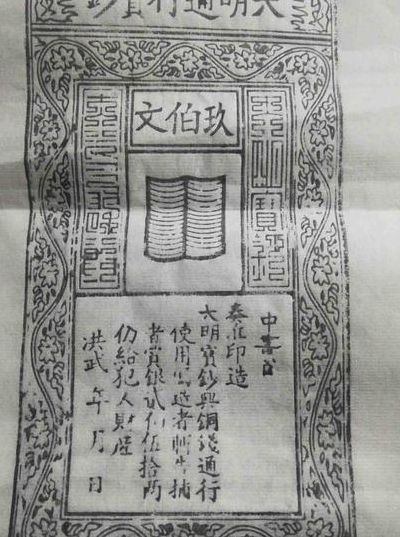 大明通行寶鈔
玖伯文
中書省
奏准印造
大明寶鈔與銅錢通行
使用偽造者斬告捕
者賞銀貳佰伍拾兩
仍給犯人財產
洪武 年 月 日